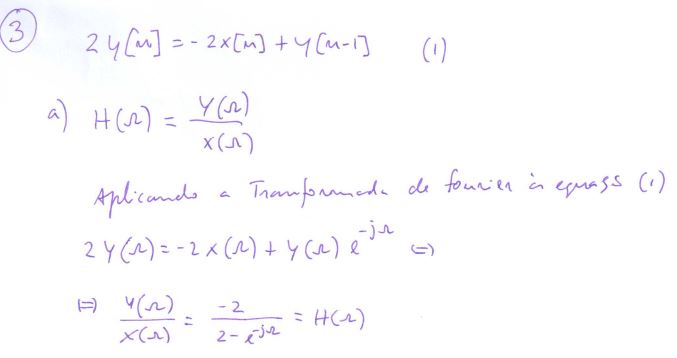 3
2 y[n] = -2x[n] + y[n-1] (1)
a) H(Ω) = Y(Ω) / X(Ω)
Aplicando a Tranformada de fourier à equação (1)
2 Y(Ω) = -2 X(Ω) + Y(Ω) e^{-jΩ} ⇔
⇔ Y(Ω) / X(Ω) = -2 / (2 - e^{-jΩ}) = H(Ω)